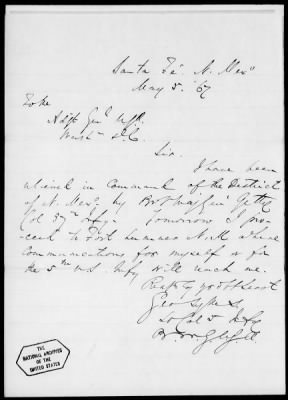 Santa Fe' N. Mexo
May 5. '67
To the
Adjt Genl U.S.A.
Washn D.C.
Sir.
I have been
relieved in Command of the District
of N. Mexo by Bvt Maj Genl Getty
Col 37th Infy. Tomorrow I pro-
ceed to Fort Sumner N.M. where
Communications for myself or for
the 5th U.S. Infy will reach me.
Respty yr obt servt
Geo Sykes
Lt Col 5 Infy
THE
NATIONAL ARCHIVES
OF THE
UNITED STATES